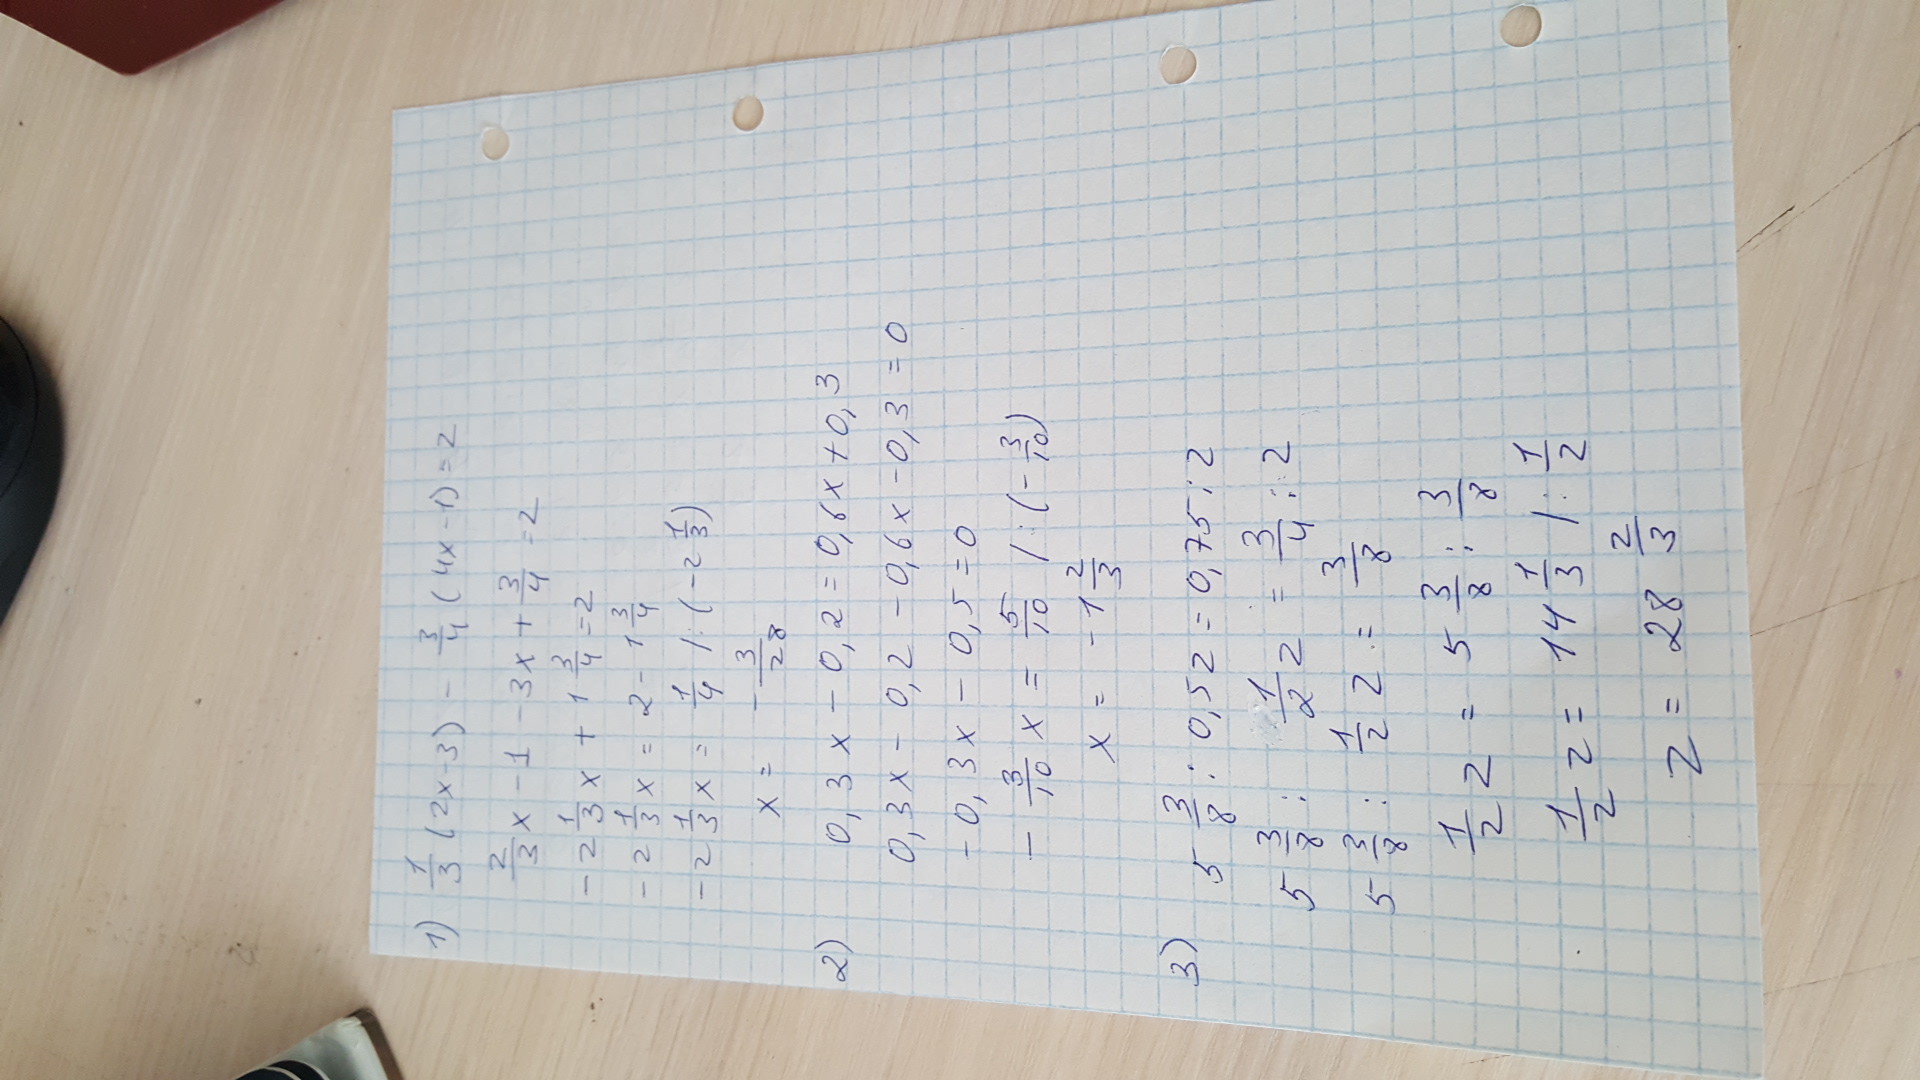 1) 1/3 (2x-3) - 3/4 (4x-1) = 2
2/3 x - 1 - 3x + 3/4 = 2
-2 1/3 x + 1 3/4 = 2
-2 1/3 x = 2 - 1 3/4
-2 1/3 x = 1/4 /:(-2 1/3)
x = - 3/28
2) 0,3x - 0,2 = 0,6x + 0,3
0,3x - 0,2 - 0,6x - 0,3 = 0
-0,3x - 0,5 = 0
- 3/10 x = 5/10 /:(- 3/10)
x = -1 2/3
3) 5 3/8 : 0,5z = 0,75 : 2
5 3/8 : 1/2 z = 3/4 : 2
5 3/8 : 1/2 z = 3/8
1/2 z = 5 3/8 : 3/8
1/2 z = 14 1/3 /: 1/2
z = 28 2/3